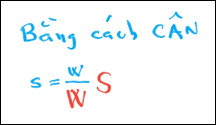 Bằng cách CÂN
s = w/W S